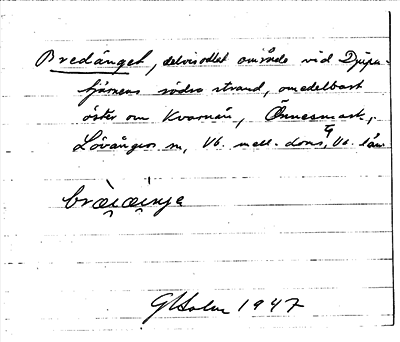 Bredänget, delvis odlat område vid Djupa-
tjärnens södra strand, omedelbart
öster om Kvarnån, Önnesmark,
Lövångers sn, Vb. mell. doms, Vb. län
bræ̀i̯æi̯nja
GHolm 1947